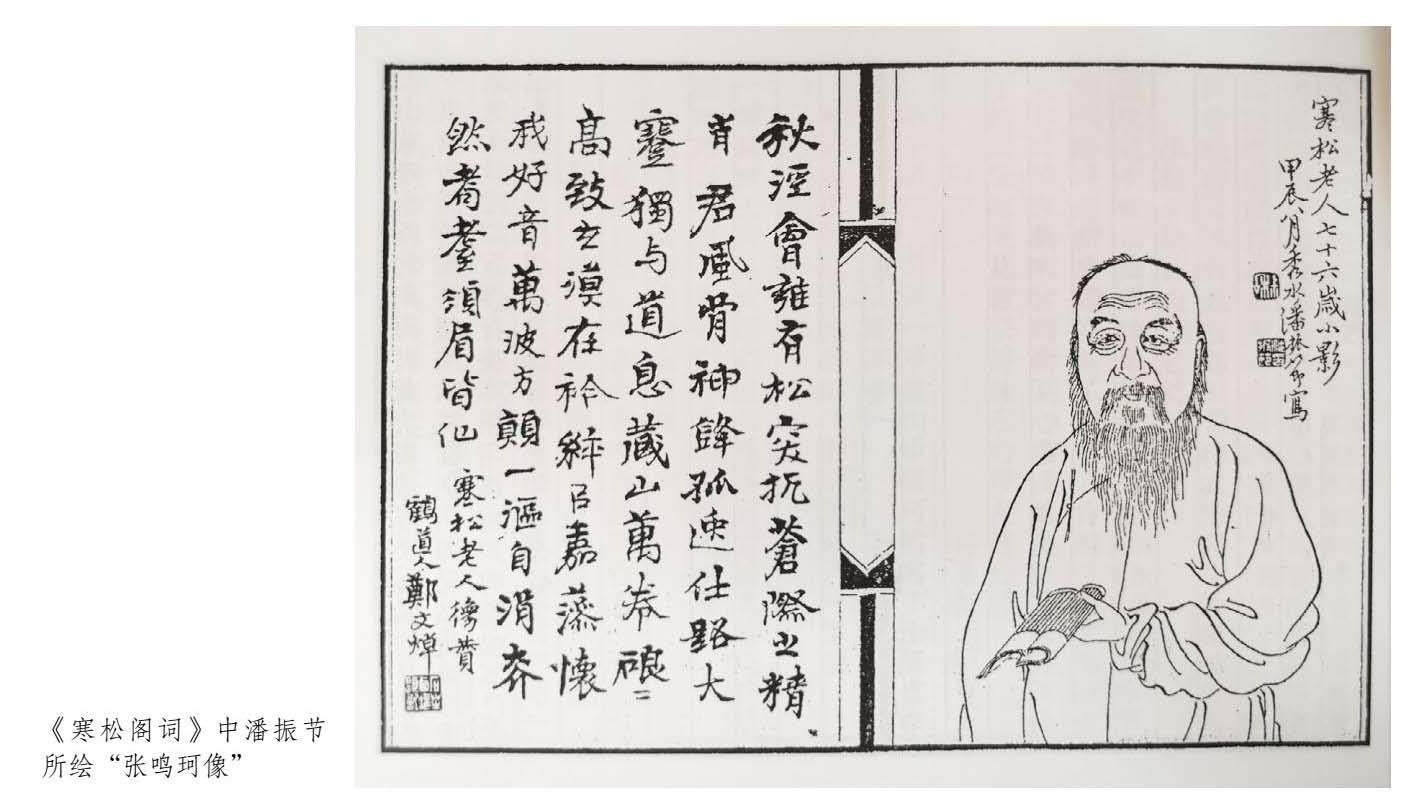 寒松老人七十六歲小影
甲辰八月秀水潘振节寫
秋涇會雍有松突蒼際之精
肖君風骨神鋒孤仕路大
蹇獨与道息藏山萬卷硠〻
高致玄漠在衿嘉藻懷
我好音萬波方顛一漚自涓
然耇耋須眉皆仙 寒松老人像贊
鶴道人鄭文焯
《寒松阁词》中潘振节
所绘“张鸣珂像”